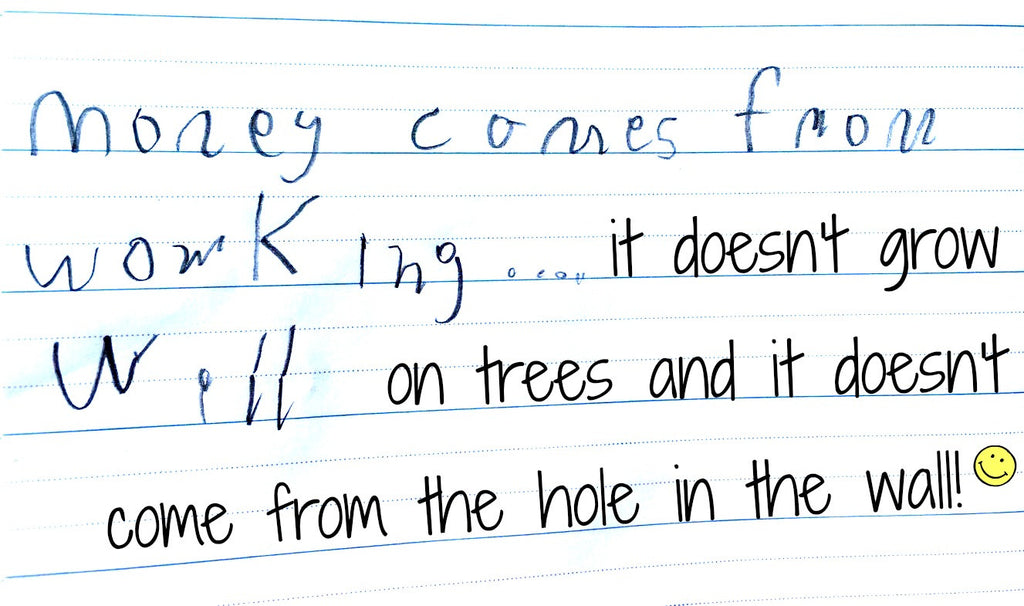 Money comes from
working..... it doesn't grow
Will on trees and it doesn't
come from the hole in the wall!